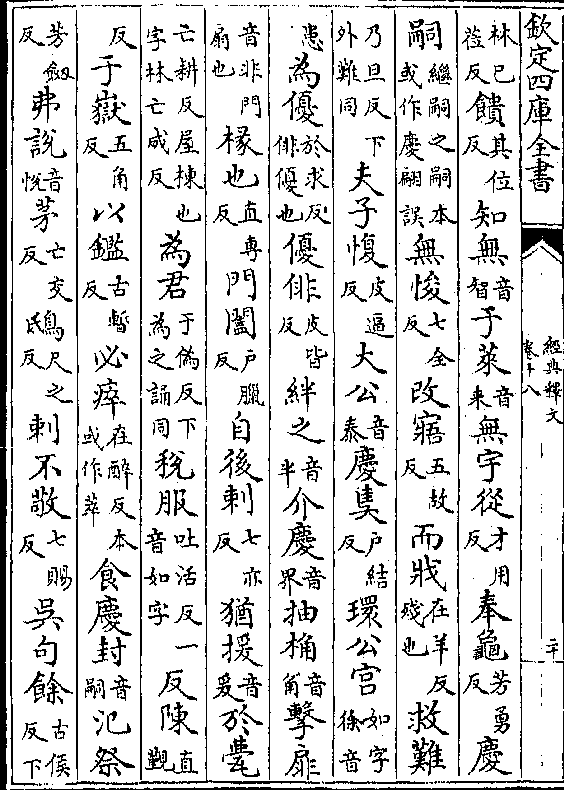 欽定四庫全書
林巳涖反饋其位反知無音智子萊音來無宇從才用反奉龜芳勇反慶
嗣繼嗣之嗣本或作慶嗣誤無悛七全反改寤五故反而戕在羊反殘也救難
乃旦反下外難同夫子愎皮逼反大公音泰慶𡙇戶結反環公宮如字徐音
患為優於求反俳優也優俳皮皆反絆之音半介慶音界抽桷音角擊扉
音非門扇也椽也直專反門闔戶臘反自後刺七亦反猶援音爰於甍
亡耕反屋棟也字林亡成反為君于偽反下為之誦同稅服吐活反一音如字反陳直覲
反于嶽五角反以鑑古暫反必瘁在醉反本或作萃食慶封音嗣氾祭
芳劔反弗說音悅茅亡交反鴟尺之反刺不敬七賜反吳句餘古侯反下
經典釋文
卷十八
二十